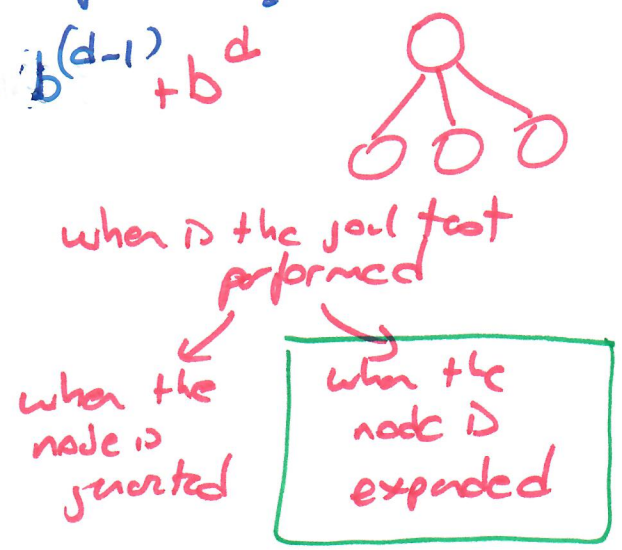 b^(d-1) + b^d
when is the goal test
performed
when the
node is
generated
when the
node is
expanded